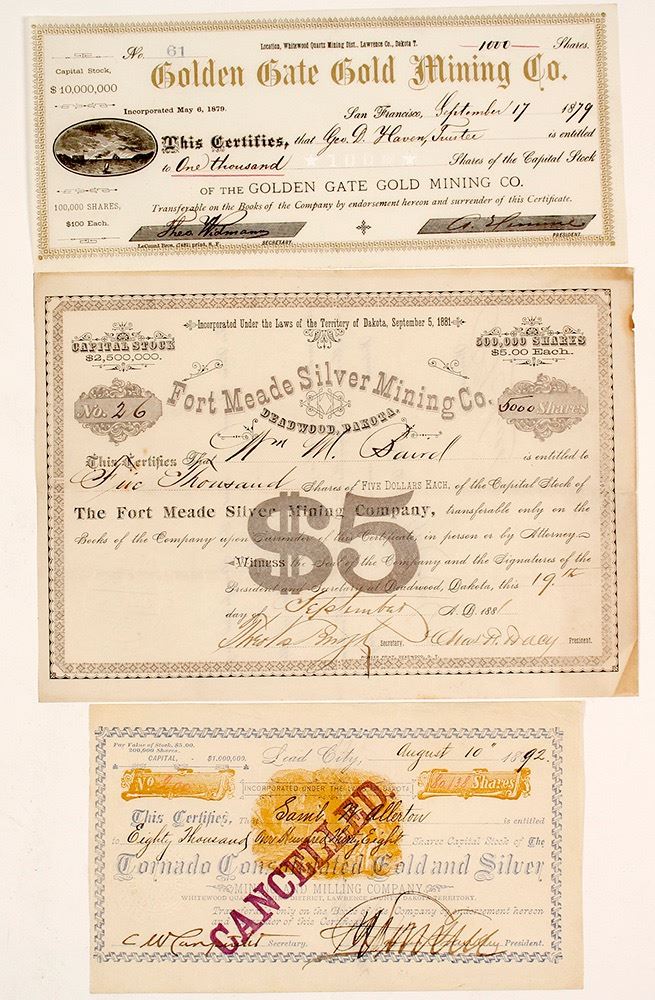 No. 61
Location, Whitewood Quartz Mining Dist., Lawrence Co., Dakota T.
1000 Shares.
Capital Stock,
$10,000,000
Golden Gate Gold Mining Co.
Incorporated May 6, 1879.
San Francisco, September 17 1879
This Certifies, that Geo. D. Haven, Trustee is entitled
to One thousand Shares of the Capital Stock
OF THE GOLDEN GATE GOLD MINING CO.
100,000 SHARES,
$100 Each.
Transferable on the Books of the Company by endorsement hereon and surrender of this Certificate.
Theo. Widmann
SECRETARY.
PRESIDENT.
Incorporated Under the Laws of the Territory of Dakota, September 5, 1881
CAPITAL STOCK
$2,500,000.
500,000 SHARES
$5.00 Each.
Fort Meade Silver Mining Co.
DEADWOOD, DAKOTA.
No. 26
5000 Shares
This Certifies That Wm M. Baird is entitled to
Five Thousand Shares of FIVE DOLLARS EACH, of the Capital Stock of
The Fort Meade Silver Mining Company, transferable only on the
Books of the Company upon Surrender of this Certificate, in person or by Attorney.
$5
Witness the Seal of the Company and the Signatures of the
President and Secretary at Deadwood, Dakota, this 19th
day of September A.D. 1881
Secretary.
President.
Par Value of Stock, $5.00.
200,000 Shares.
CAPITAL, - $1,000,000.
Lead City, August 10" 1892.
No
Shares
INCORPORATED UNDER THE LAWS DAKOTA
This Certifies, That Saml W Allerton is entitled
to Eighty Thousand One Hundred Thirty Eight Shares Capital Stock of The
Tornado Consolidated Gold and Silver
MINING AND MILLING COMPANY
WHITEWOOD QUARTZ DISTRICT, LAWRENCE COUNTY DAKOTA TERRITORY.
Transferable only on the Books of the Company by endorsement hereon
and surrender of this Certificate
CANCELLED
Secretary.
President.